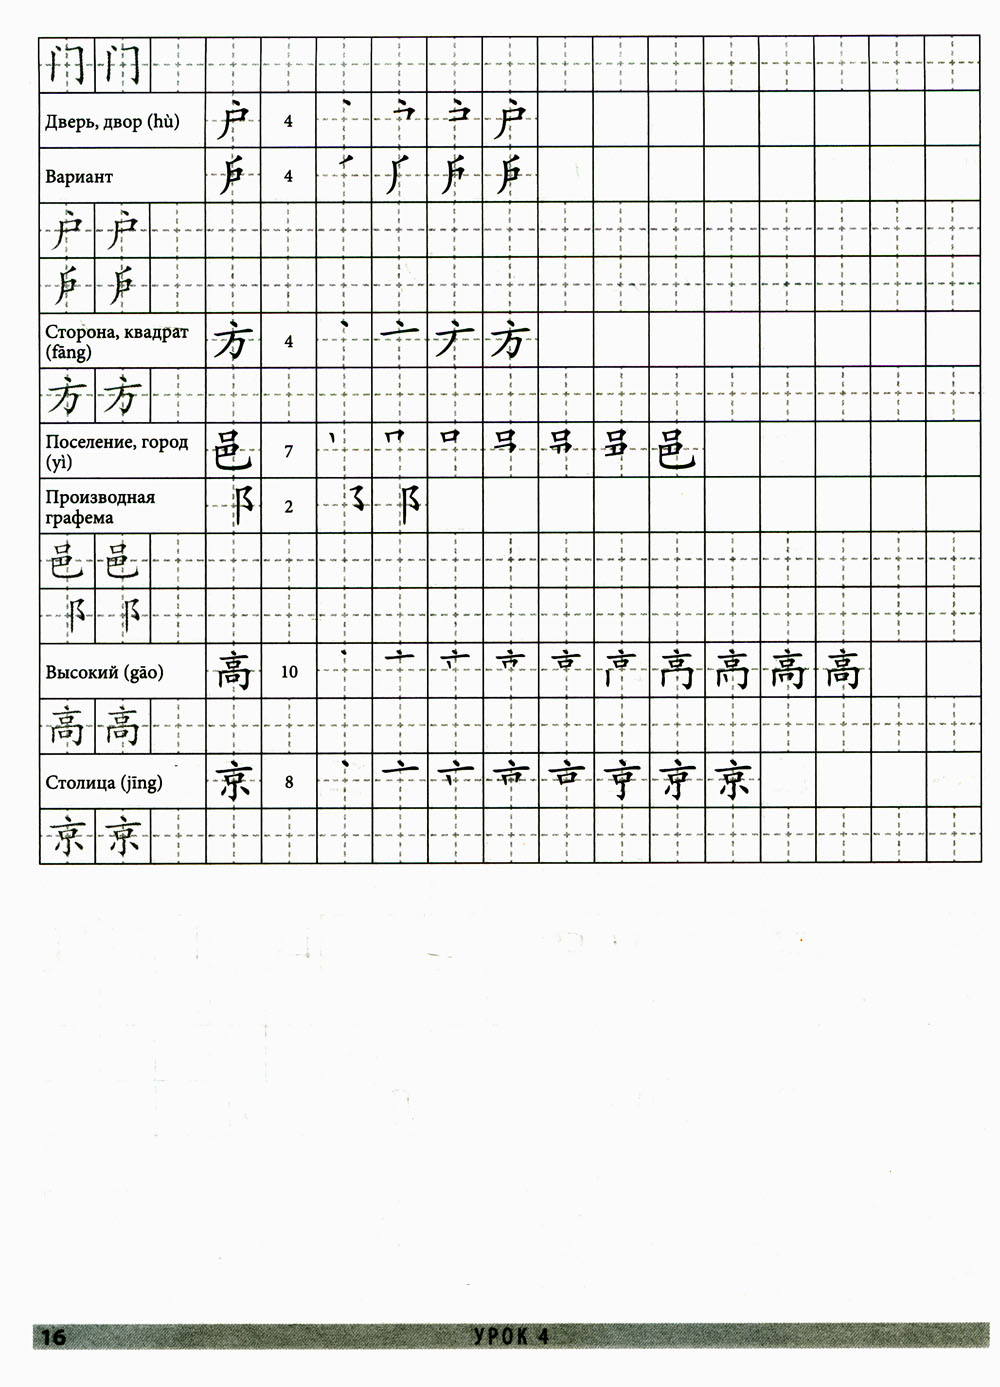 门 门
Дверь, двор (hù) 户 4 户
Вариант 戶 4 戶
户 户
戶 戶
Сторона, квадрат
(fāng) 方 4 丶 亠 方
方 方
Поселение, город
(yì) 邑 7 丨 口 吕 邑
Производная
графема 阝 2 阝
邑 邑
阝 阝
Высокий (gāo) 高 10 丶 亠 高
高 高
Столица (jīng) 京 8 丶 亠 亨 京
京 京
16 УРОК 4